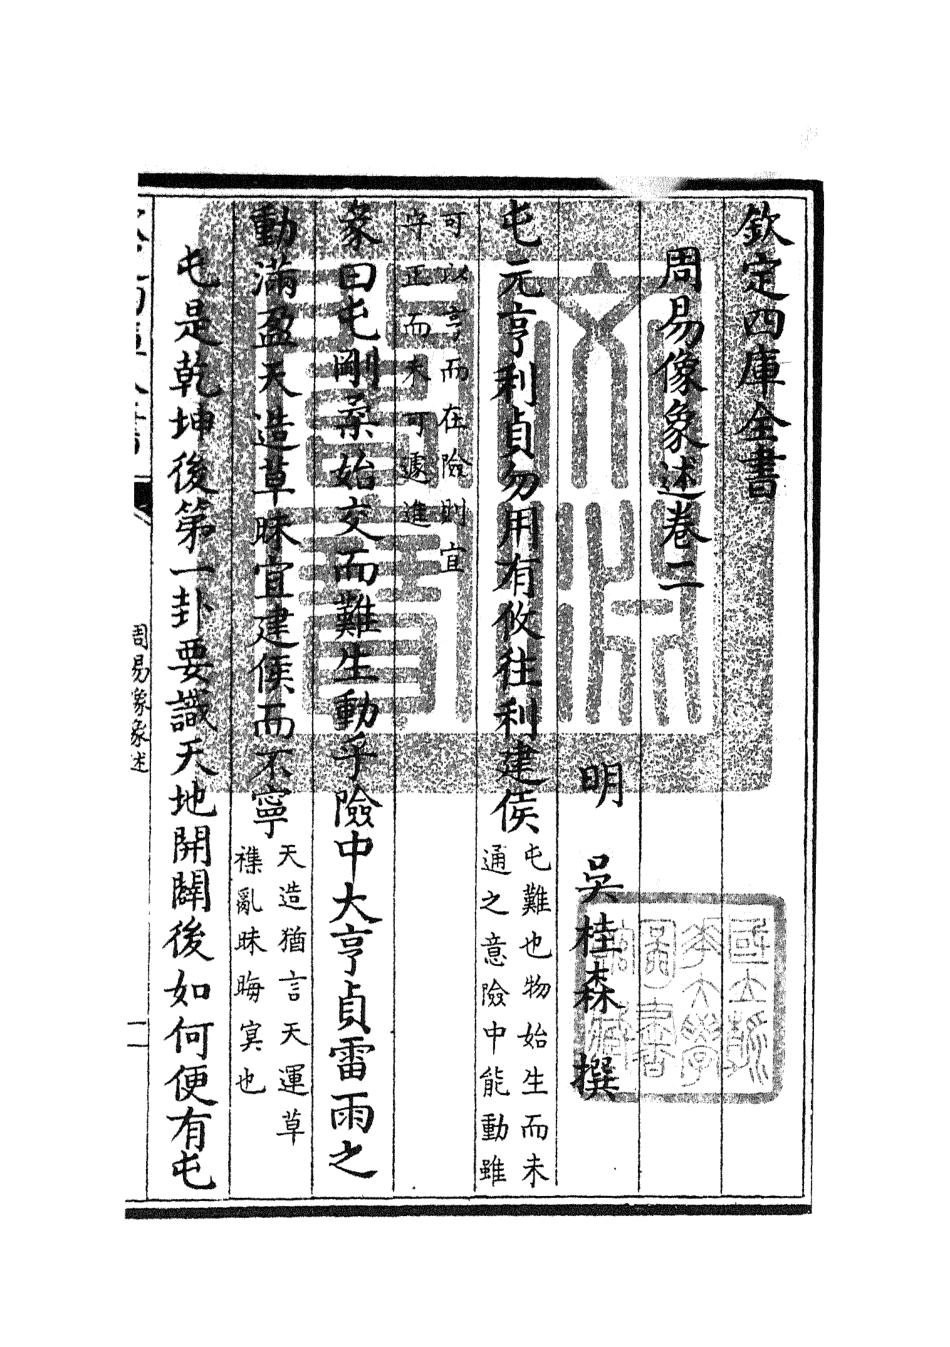 欽定四庫全書
周易像象述卷二
明 吳桂森 撰
屯元亨利貞勿用有攸往利建侯
屯難也物始生而未
通之意險中能動雖
可以亨而在險則宜
守正而未可遽進
彖曰屯剛柔始交而難生動乎險中大亨貞雷雨之
動滿盈天造草昧宜建侯而不寧
天造猶言天運草
襍亂昧晦冥也
屯是乾坤後第一卦要識天地開闢後如何便有屯
周易像象述
一
文淵閣寶
國立清華大學圖書館藏